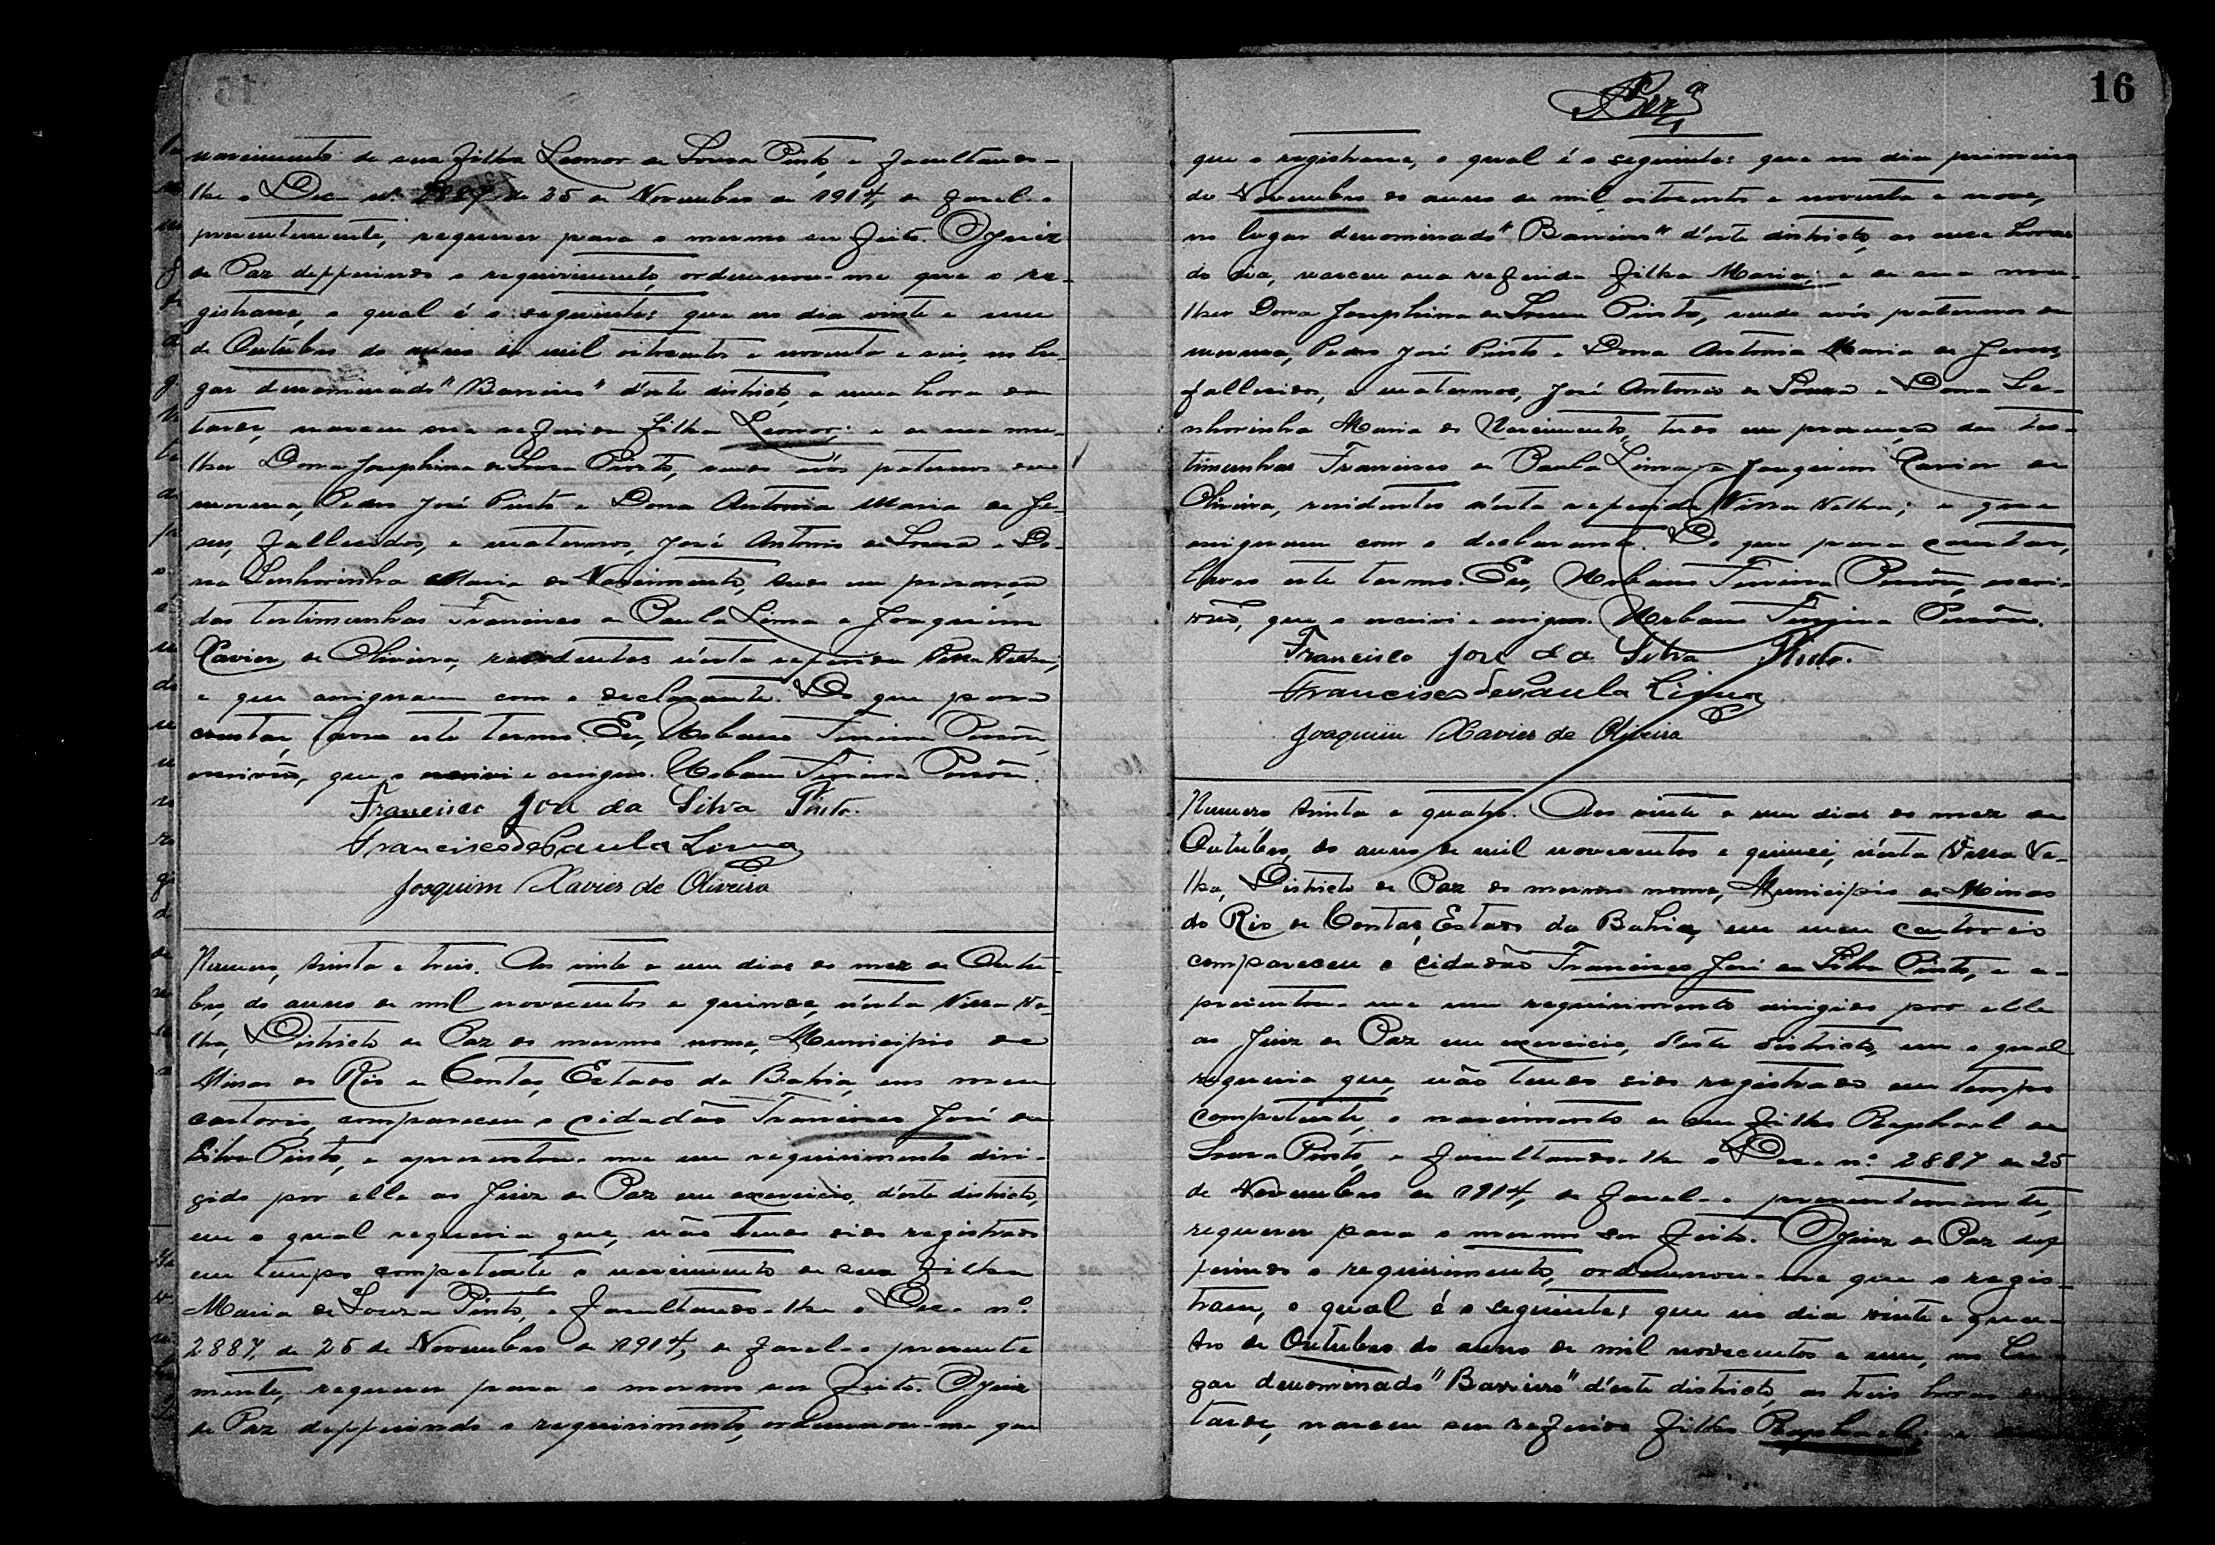 nascimento de sua filha Leonor de Souza Pinto, e facultando-
lhe o Dec. nº 2887 de 25 de Novembro de 1914, de fazel-o
presentemente, requerer para o mesmo ser feito. O Juiz
de Paz defferindo o requerimento, ordennou-me que o re-
gistrasse, o qual é o seguinte: que no dia vinte e um
de Outubro do anno de mil oitocentos e noventa e seis, no lu-
gar denominado "Barreiro" d'este districto, a uma hora da
tarde, nasceu sua referida filha Leonor; e de sua mu-
lher Dona Josephina de Souza Pinto, sendo avós paternos da
mesma, Pedro José Pinto e Dona Antonia Maria de Je-
sus, fallecidos, e maternos, José Antonio de Souza e Do-
na Senhorinha Maria do Nascimento, tudo em presença
das testimunhas Francisco de Paula Lima e Joaquim
Xavier de Oliveira, residentes n'esta referida Villa Velha;
e que assignam com o declarante. Do que para
constar, lavro este termo. Eu, Urbano Ferreira
escrivão, que o escrevi e assigno. Urbano Ferreira
Francisco José da Silva Pinto.
Francisco de Paula Lima
Joaquim Xavier de Oliveira
Numero, trinta e treis. Aos vinte e um dias do mez de Outu-
bro, do anno de mil novecentos e quinze, n'esta Villa Ve-
lha, Districto de Paz do mesmo nome, Municipio de
Minas do Rio de Contas, Estado da Bahia, em meu
cartorio, compareceu o cidadão Francisco José da
Silva Pinto, e apresentou-me um requirimento diri-
gido por elle ao Juiz de Paz em exercicio, d'este districto,
em o qual requeria que, não tendo sido registrado
em tempo competente o nascimento de sua filha
Maria de Souza Pinto, e facultando-lhe o Dec. nº
2887, de 25 de Novembro de 1914, de fazel-o presente
mente, requerer para o mesmo ser feito. O Juiz
de Paz defferindo o requirimento, ordennou-me que
16
que o registrasse, o qual é o seguinte: que no dia primeiro
de Novembro do anno de mil oitocentos e noventa e nove,
no lugar denominado "Barreiro" d'este districto, as onze horas
do dia, nasceu sua referida filha Maria; e de sua mu-
lher Dona Josephina de Souza Pinto, sendo avós paternos da
mesma, Pedro José Pinto e Dona Antonia Maria de Jesus,
fallecidos, e maternos, José Antonio de Souza e Dona Se-
nhorinha Maria do Nascimento, tudo em presença das tes-
timunhas Francisco de Paula Lima e Joaquim Xavier de
Oliveira, residentes n'esta referida Villa Velha; e que
assignam com o declarante. Do que para constar,
lavro este termo. Eu, Urbano Ferreira escri-
vão, que o escrevi e assigno. Urbano Ferreira
Francisco José da Silva Pinto.
Francisco de Paula Lima
Joaquim Xavier de Oliveira
Numero trinta e quatro. Aos vinte e um dias do mez de
Outubro, do anno de mil novecentos e quinze, n'esta Villa Ve-
lha, Districto de Paz do mesmo nome, Municipio de Minas
do Rio de Contas, Estado da Bahia, em meu cartorio
compareceu o cidadão Francisco José da Silva Pinto, e a-
presentou-me um requirimento dirigido por elle
ao Juiz de Paz em exercicio, d'este districto, em o qual
requeria que, não tendo sido registrado em tempo
competente, o nascimento de seu filho Raphael de
Souza Pinto, e facultando-lhe o Dec. nº 2887 de 25
de Novembro de 1914, de fazel-o presentemente,
requerer para o mesmo ser feito. O Juiz de Paz def
ferindo o requirimento, ordennou-me que o regis-
trasse, o qual é o seguinte: que no dia vinte e qua-
tro de Outubro do anno de mil novecentos e um, no lu-
gar denominado "Barreiro" d'este districto, as treis horas da
tarde, nasceu seu referido filho Raphael;